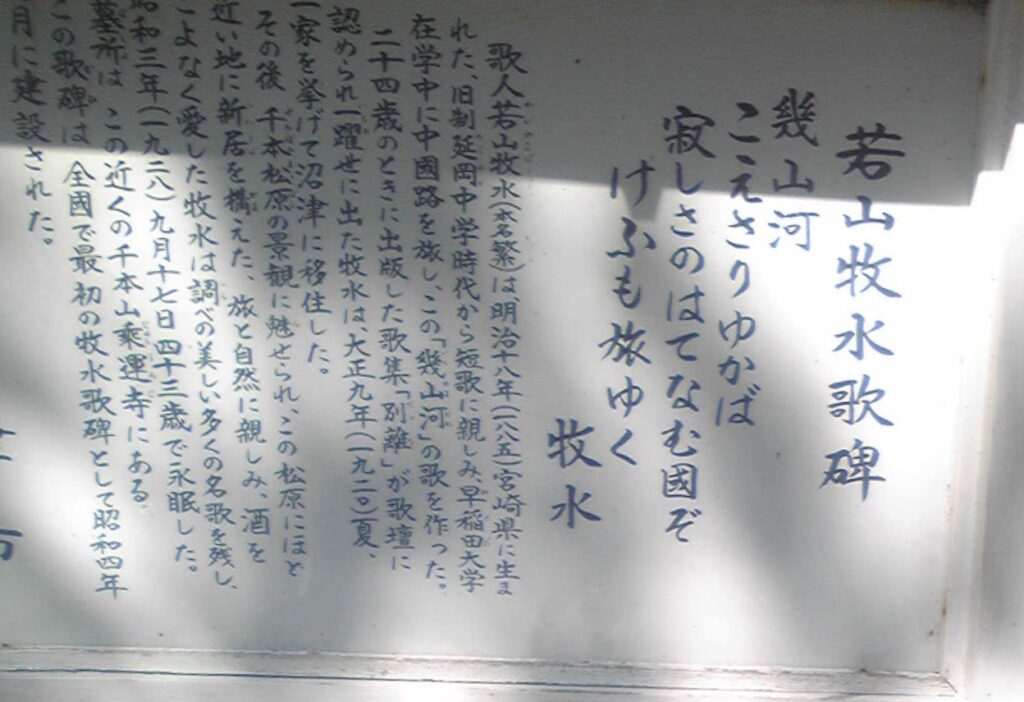 若山牧水歌碑
幾山河
こえさりゆかば
寂しさのはてなむ國ぞ
けふも旅ゆく
牧水
歌人若山牧水(本名繁)は、明治十八年(一八八五)宮崎県に生ま
れた、旧制延岡中学時代から短歌に親しみ、早稲田大学
在学中に中國路を旅し、この「幾山河」の歌を作った。
二十四歳のときに出版した歌集「別離」が歌壇に
認められ一躍世に出た牧水は、大正九年(一九二〇)夏、
一家を挙げて沼津に移住した。
その後 千本松原の景観に魅せられ、この松原にほど
近い地に新居を構えた、旅と自然に親しみ、酒を
こよなく愛した牧水は調べの美しい多くの名歌を残し、
昭和三年(一九二八)九月十七日四十三歳で永眠した。
墓所は この近くの千本山乗運寺にある。
この歌碑は 全國で最初の牧水歌碑として昭和四年
月に建設された。
市